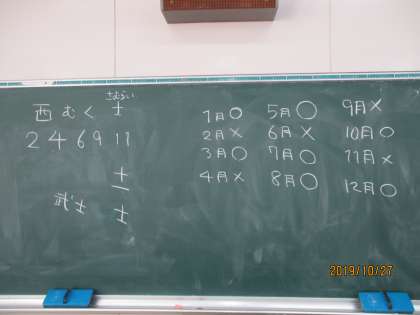 さむらい
西むく士
2 4 6 9 11
十
一
武士 士
1月○
2月×
3月○
4月×
5月○
6月×
7月○
8月○
9月×
10月○
11月×
12月○
2019/10/27